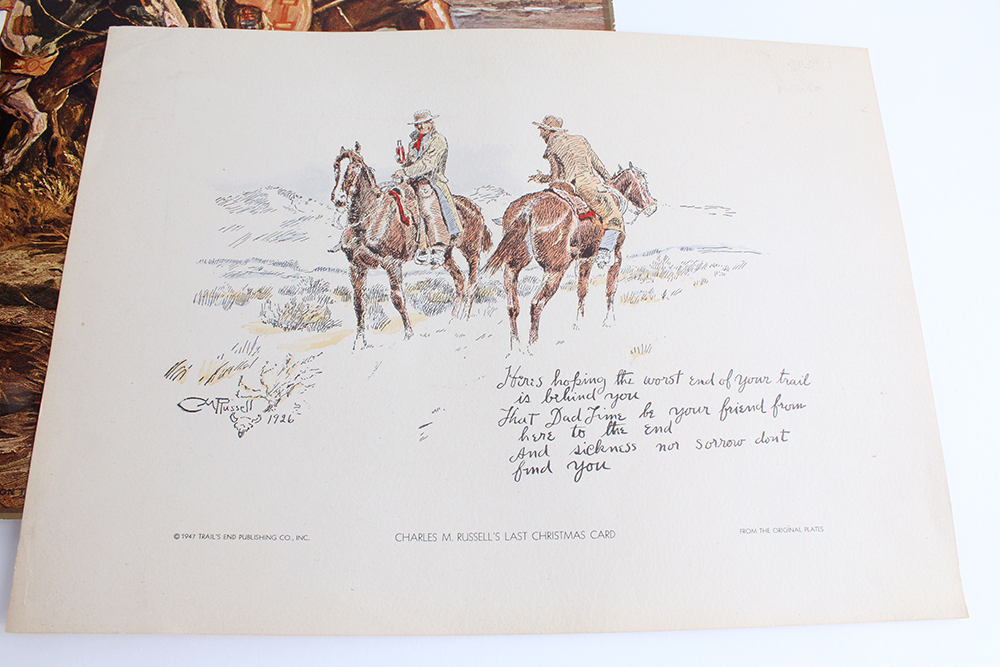 CMRussell
1926
Heres hoping the worst end of your trail
is behind you
That Dad Time be your friend from
here to the end
And sickness nor sorrow dont
find you
© 1947 TRAIL'S END PUBLISHING CO., INC.
CHARLES M. RUSSELL'S LAST CHRISTMAS CARD
FROM THE ORIGINAL PLATES